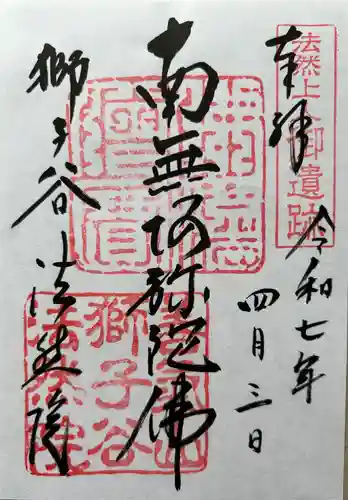 奉拝
法然上人御遺跡
令和七年
四月三日
南無阿弥陀佛
獅子谷法然院